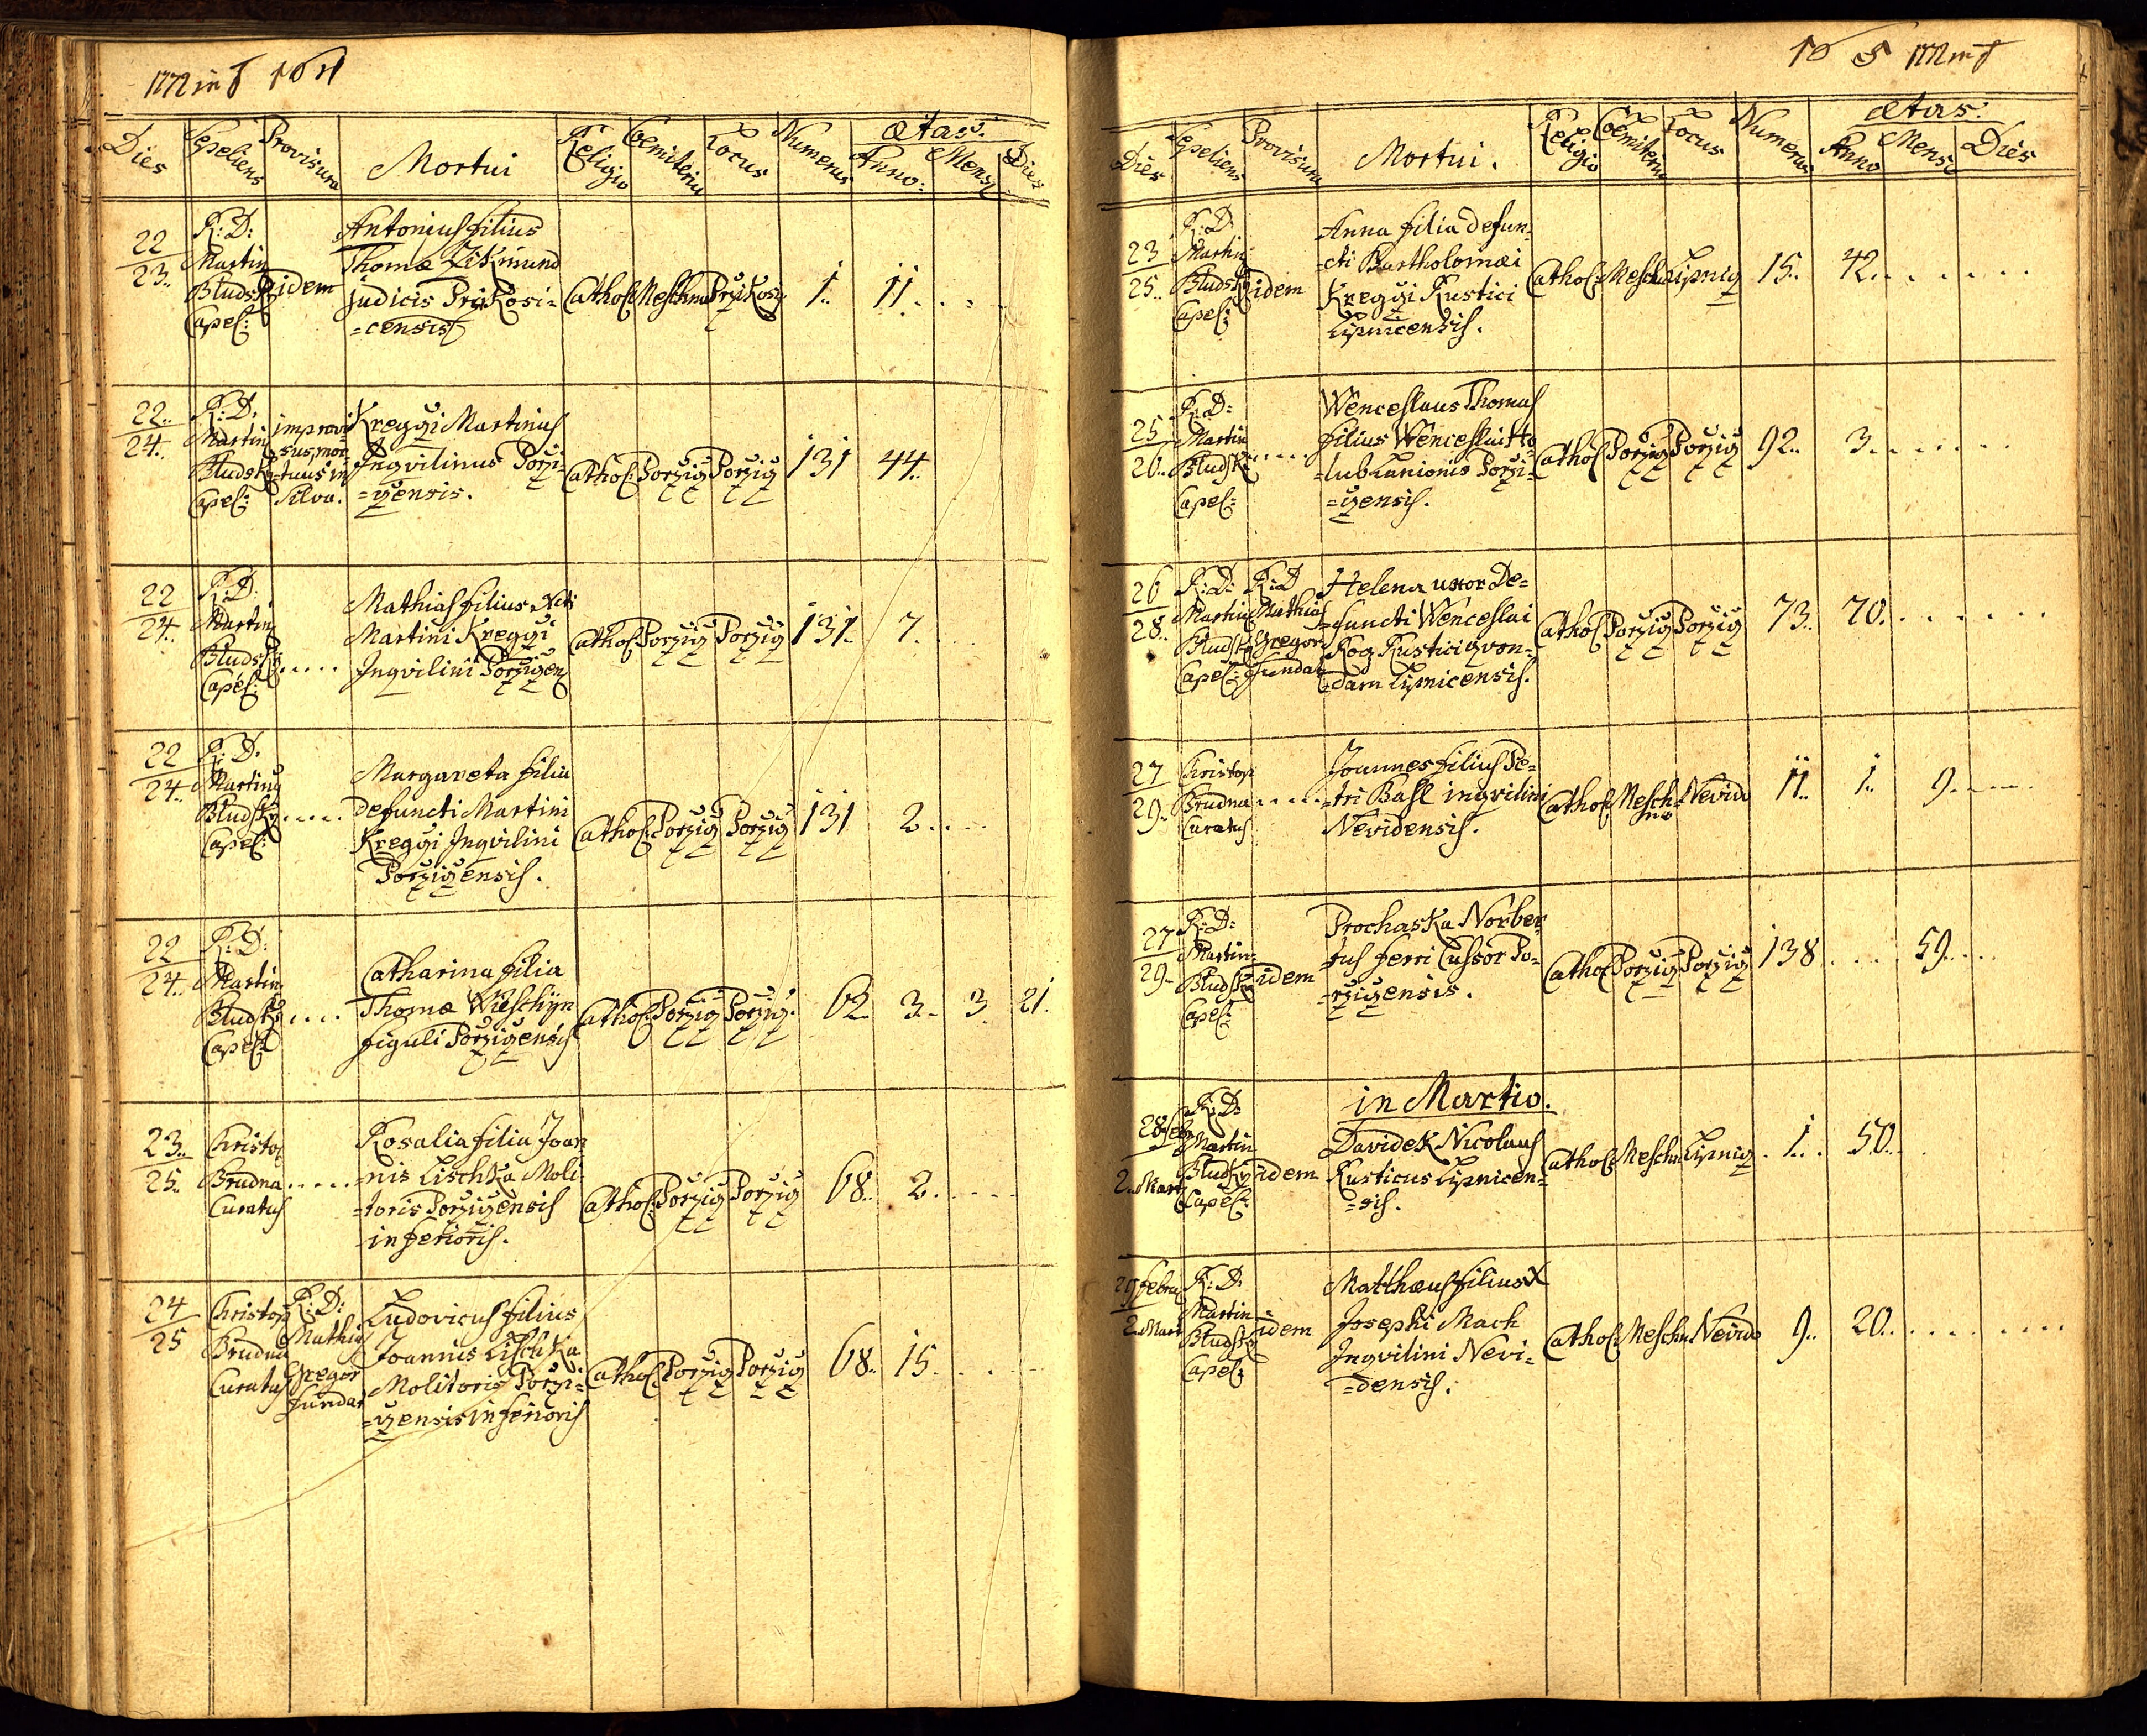 1772 in f 164
Dies Sepeliens Provisura Mortui Religio Coemiterium Locus Numerus Ætas:
Anno: Mens Dies
22
23..
R: D:
Martin
Bludsky
Capel:
idem
Antonius filius
Thomæ Zikmund
judicis Przikosi-
=censis
Cathol: Meschno Przikosi 1.. 11. . . .
22..
24..
R: D:
Martin
Bludsky
Capel:
improvi-
sus, mor-
=tuus in
Silva.
Kreggi Martinus
Inqvilinus Porzi-
=zensis.
Cathol: Porzizi Porzizi 131 44..
22
24..
R: D:
Martin
Bludsky
Capel:
Mathias filius Ncti
Martini Kreggi
Inqvilini Porzizen
Cathol: Porzizi Porzizi 131.. 7.
22
24..
R: D:
Martin
Bludsky
Capel:
Margareta filia
defuncti Martini
Kreggi Inqvilini
Porzizensis.
Cathol: Porzizi Porzizi 131 2. . . .
22
24..
R: D:
Martin
Bludsky
Capel:
Catharina filia
Thomæ Wieschyn
figuli Porzizensis
Cathol: Porzizi Porzizi. 62 3.. 3 21.
23..
25..
Christop
Brudna
Curatus
Rosalia filia Joan
=nis Lischka Moli
=toris Porzizensis
inferioris.
Cathol: Porzizi Porzizi 68.. 2. . . . .
24
25
Christop
Brudna
Curatus
R: D:
Mathias
Gregor
Fundat
Ludovicus filius
Joannis Lischka
Molitoris Porzi=
=zensis inferioris
Cathol: Porzizi Porzizi 68.. 15. . .
165 1772 in f
Dies Sepeliens Provisura Mortui. Religio Coemiterium Locus Numerus Ætas:
Anno Mens Dies
23
25..
R: D
Martin
Bludsky
Capel:
idem
Anna filia defun-
=cti Bartholomæi
Kreggi Rustici
Lipnicensis.
Cathol: Meschno Lipniz 15.. 42. . . . . . .
25
26..
R: D:
Martin
Bludsky
Capel:
Wenceslaus Thomas
filius Wenceslai Ho
=lub Lanionis Porzi=
=zensis.
Cathol Porzizi Porzizi 92.. 3. . . . . .
26
28..
R: D:
Martin
Bludsky
Capel:
R: D
Mathias
Gregor
Fundat
Helena uxor De=
=functi Wenceslai
Rog Rustici qvon=
=dam Lipnicensis.
Cathol: Porzizi Porzizi 73.. 70. . . . . .
27
29..
Christop
Brudna
Curatus
Joannes filius Pe=
=tri Basl inqvilini
Nevidensis.
Cathol: Mesch
no Nevid 11.. 1. 9. . . .
27
29..
R: D:
Martin
Bludsky
Capel:
idem
Prochaska Norber
=tus ferri Cussor Po=
=rzizensis.
Cathol Porzizi Porzizi 138 . . . . 59. . . .
in Martio.
28 feb
2.. Mart
R: D:
Martin
Bludsky
Capel:
idem
Davidek Nicolaus
Rusticus Lipnicen=
=sis.
Cathol: Meschn Lipniz . 1.. . 50..
29 febru
2. Mart
R: D:
Martin
Bludsky
Capel:
idem
Matthæus filius X
Josephi Mach
Inqvilini Nevi=
=densis.
Cathol: Meschn Nevid 9.. 20. . . . . . . . .